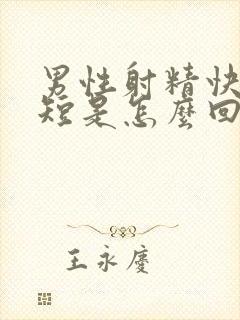 男性射精快
短是怎麼回
王永慶